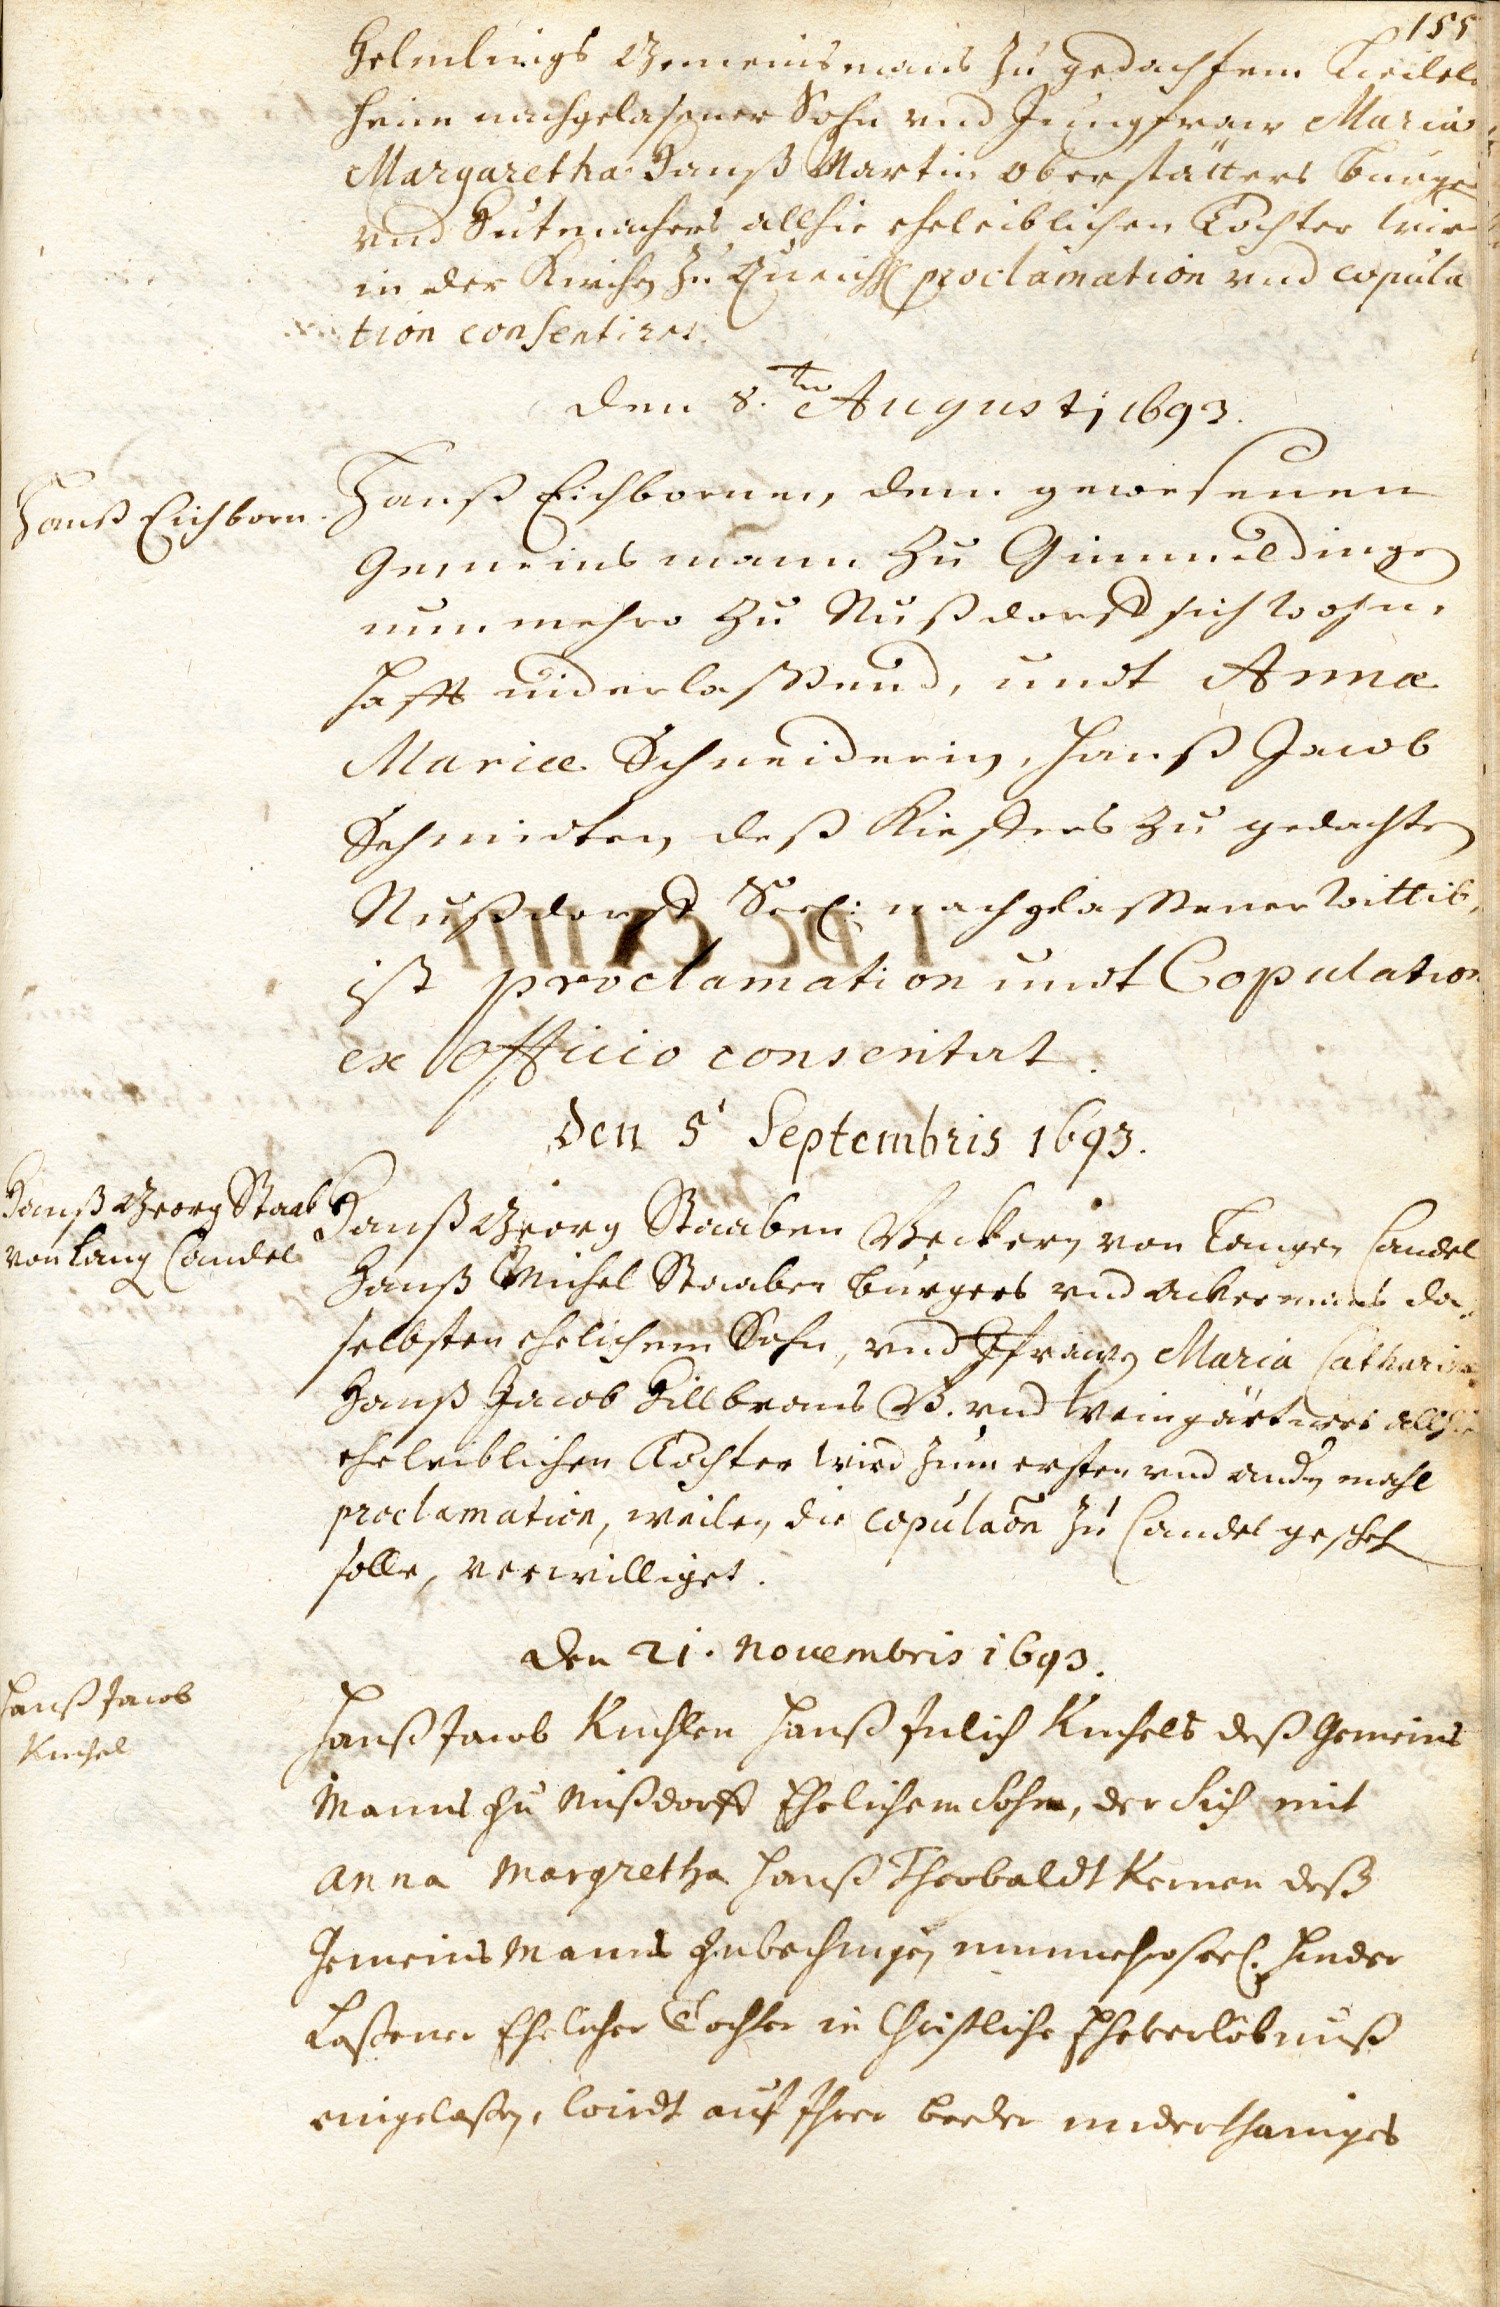 155
Helmlings Gemeinsmans zu gedachtem
heim nachgelaßener Sohn vnd Jungfraw Maria
Margaretha Hanß Martin Oberstätters burge
vnd Hutmachers allhie eheleiblichen Tochter wir
in der Kirchen zu Queich proclamation vnd copula
tion consentiret.
Den 8.ten Augusti 1693.
Hanß Eichborn.
Hanß Eichbornen, dem gewesenen
Gemeinsmann zu Gimmeldingen
nunmehro zu Nußdorff sich wohn,
hafft niderlaßend, undt Anna
Mariæ Schneiderin, Hanß Jacob
Schmidten deß Kieffers zu gedachten
Nußdorff Seel: nachgelassener Wittib,
ist proclamation undt Copulation
ex officio consentirt.
Den 5' Septembris 1693.
Hanß Georg Staab
von Lang Candel
Hanß Georg Staaben Beckern von Langen Candel
Hanß Michel Staaben burgers vnd ackermans da,
selbsten ehelichem Sohn, vnd Jfrawen Maria Catharina
Hanß Jacob Hillbrans B. vnd Weingärtners allhie
eheleiblichen Tochter wird zum ersten vnd andern mahl
proclamation, weilen die copulaõn zu Candel gescheh
solle, verwilliget.
Den 21. Novembris 1693.
Hanß Jacob
Kuchel
Hanß Jacob Kuchlen Hanß Kuchels deß Gemeins
Manns zu Nußdorff Ehelichem Sohn, der Sich mit
Anna Margretha Hanß Theobaldt Kernen deß
Gemeins Manns nunmehro seel. hinder
Laßener Ehelicher Tochter in Christliche Eheverlöbnuß
eingelaßen, wirdt auf Ihrer beeder underthäniges